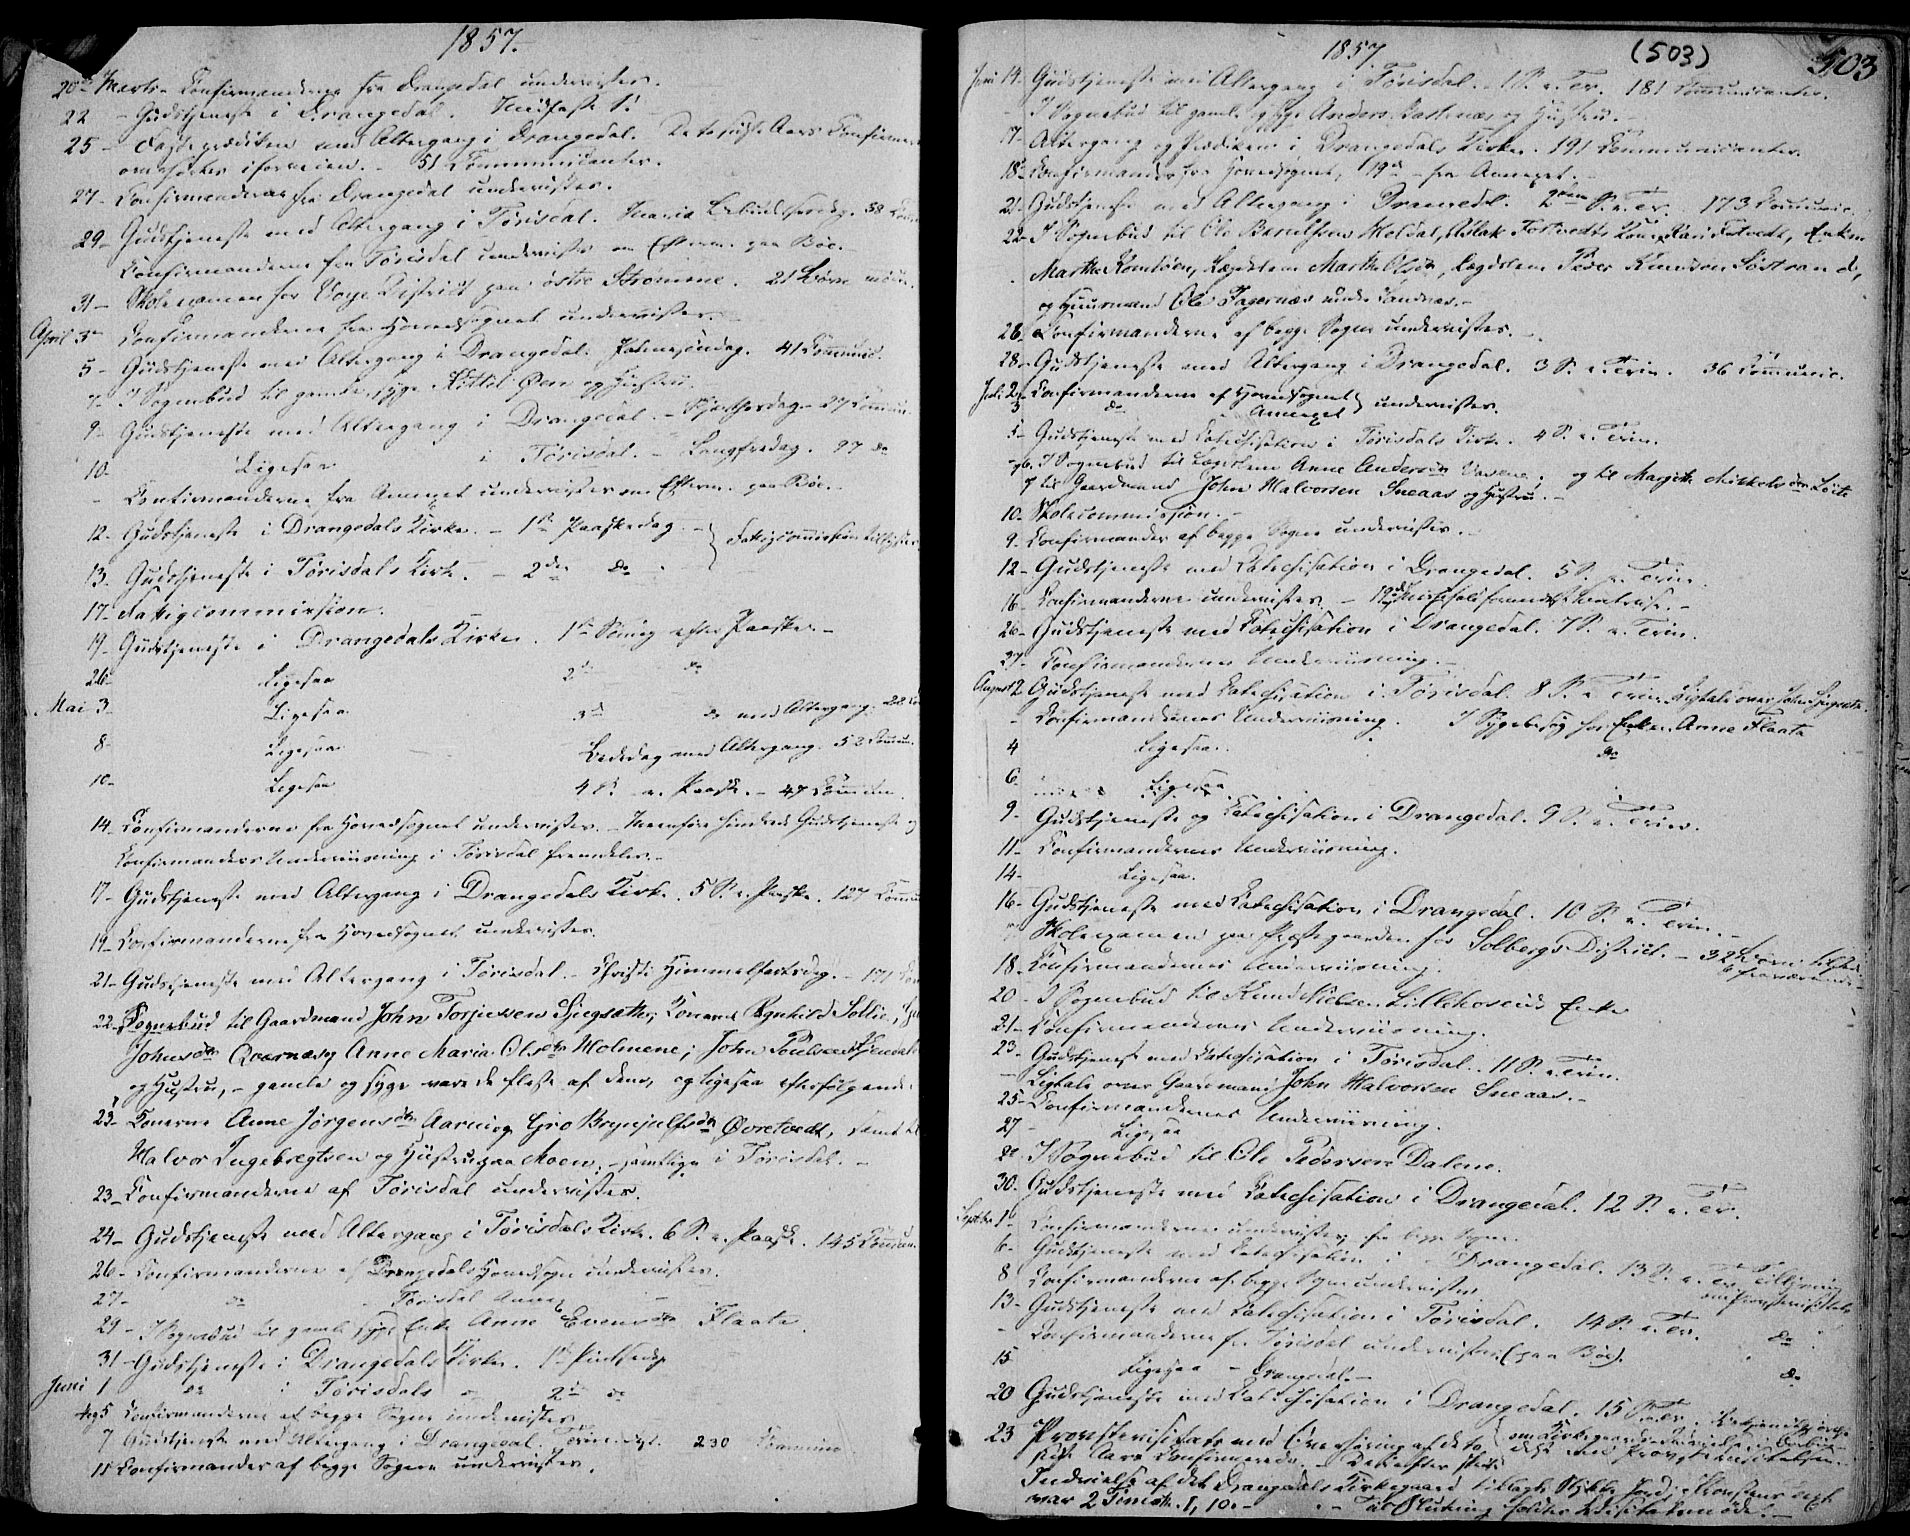 1857.
20de Marts - Confirmanderne fra Drangedal undervistes.
22 - Gudstjeneste i Drangedal. Midfaste S.
25 - Fasteprædiken med Altergang i Drangedal. De to sidste Aars Confirmerede
overhørtes iforveien. - 51 Communicanter.
27 - Confirmanderne fra Drangedal undervistes.
29 - Gudstjeneste med Altergang i Tørisdal. Mariæ Bebudelsesdag. 38 Comm
Confirmanderne fra Tørisdal undervistes om Efterm. paa Bøe.
31 - Skoleexamen for Voje District paa østre Strømme. 21 Børn
April 3 - Confirmanderne fra Hovedsognet undervistes.
5 - Gudstjeneste med Altergang i Drangedal. Palmesøndag. 41 Communic.
7 - I Sognebud til gamle, syge Kittil Øen og Hustru.
9 - Gudstjeneste med Altergang i Drangedal. - Skjærthorsdag - 27 Commun.
10 - Ligesaa i Tørisdal. - Langfredag. 97 do
- Confirmanderne fra Annexet undervistes om Efterm. paa Bøe.
12 - Gudstjeneste i Drangedals Kirke. - 1ste Paaskedag. - Fattigcommission
13 - Gudstjeneste i Tørisdals Kirke. - 2den do
17 - Fattigcommission.
19 - Gudstjeneste i Drangedals Kirke. 1ste Søndag efter Paaske. -
26 - Ligesaa 2den do
Mai 3 - Ligesaa 3die do med Altergang. 22 Co
8 - Ligesaa Bededag med Altergang. 52 Commun.
10 - Ligesaa 4 S. e. Paaske. - 47 Commun.
14 - Confirmanderne fra Hovedsognet undervistes. - Meenføre hindrede Gudstjeneste og
Confirmanders Underviisning i Tørisdal fremdeles. -
17 - Gudstjeneste med Altergang i Drangedals Kirke. 5 S. e. Paaske. 127 Commu
19 - Confirmanderne fra Hovedsognet undervistes.
21 - Gudstjeneste med Altergang i Tørisdal. - Christi Himmelfartsdag. - 171 Com
22 - I Sognebud til Gaardmand John Torjussen Sjugsæther, Konerne Ragnhild Sollie,
Johnsdtr Qvernes og Anne Maria Olsdtr Holmene; John Poulsen
og Hustru, - gamle og syge vare de fleste af dem, og ligesaa efterfølgende:
23 - Konerne Anne Jørgensdtr Aarni og Gro Brynjulfsdtr Øvretvedt, samt til
Halvor Ingebregtsen og Hustru paa Moen, - samtlige i Tørisdal. -
23 - Confirmanderne af Tørisdal undervistes.
24 - Gudstjeneste med Altergang i Tørisdals Kirke. 6 S. e. Paaske. 145 Commun.
26 - Confirmanderne af Drangedals Hovedsogn undervistes.
27 - do Tørisdal Annex -
29 - I Sognebud til gamle syge Enke Anne Evensdtr Flaate.
31 - Gudstjeneste i Drangedals Kirke. 1ste Pintsedag
Juni 1 do i Tørisdals do 2den do
4 og 5 Confirmanderne af begge Sogne undervistes
7 Gudstjeneste med Altergang i Drangedal. Trin. 230 Commun
11 Confirmander af begge Sogne undervistes.
1857 (503) 503
Juni 14 - Gudstjeneste med Altergang i Tørisdal. - 1 S. e. Tr. 181 Communicanter.
- I Sognebud til gaml. syge Anders Bostrnæs og Hustru. -
17 - Altergang og Prædiken i Drangedals Kirke. 191 Communicanter.
18 - Confirmander fra Hovedsognet, 19de - fra Annexet. -
21 - Gudstjeneste med Altergang i Drangedal. 2den S. e. Tr. 173 Communic.
22 - I Sognebud til Ole Moldal, Aslak Tostvedts Kone, Kari Tostvedt, Enken
Marthe Komtøen, Lægdslem Marthe Olsdtr, Lægdslem Peder Knudsen Søstrand,
og Huusmand Ole Jagernæs under Sandnæs. -
26 - Confirmanderne af begge Sogne undervistes. -
28 - Gudstjeneste med Altergang i Drangedal. 3 S. e. Trin. 36 Communic.
Juli 2 - Confirmanderne af Hovedsognet
3 do Annexet } undervistes.
5 - Gudstjeneste med Catechisation i Tørisdals Kirke. 4 S. e. Trin.
6 - I Sognebud til Lægdslem Anne Andersdtr; og til Margith Mikkelsdtr Løite
7 til Gaardmand John Halvorsen Sneaas og Hustru. -
10 - Skolecommission. -
9 - Confirmander af begge Sogne undervistes. -
12 - Gudstjeneste med Catechisation i Drangedal. 5 S. e. Trin.
16 - Confirmanderne undervistes. -
26 - Gudstjeneste med Catechisation i Drangedal. 7 S. e. Trin.
27 - Confirmandernes Underviisning. -
August 2 Gudstjeneste med Catechisation i Tørisdal. 8 S. e. Trin. Ligtale over
- Confirmandernes Underviisning. I Sygebesøg hos Enken Anne Flaate
4 Ligesaa. do
6 - Ligesaa
9 - Gudstjeneste og Catechisation i Drangedal. 9 S. e. Trin.
11 - Confirmandernes Underviisning.
14 - Ligesaa.
16 - Gudstjeneste med Catechisation i Drangedal. 10 S. e. Trin. -
Skoleexamen paa Præstegaarden for Solbergs District. - 32 Børn tilstede
6 fraværende
18 - Confirmandernes Underviisning.
20 - I Sognebud til Knud Nielsen Lillekoseids Enke
21 - Confirmandernes Underviisning.
23 - Gudstjeneste med Catechisation i Tørisdal. 11 S. e. Trin.
- Ligtale over Gaardmand John Halvorsen Sneaas. -
25 - Confirmandernes Underviisning.
27 - Ligesaa
29 - I Sognebud til Ole Pedersen Dalene.
30 - Gudstjeneste med Catechisation i Drangedal. 12 S. e. Tr.
Septbr. 1 - Confirmanderne undervistes fra begge Sogne.
6 - Gudstjeneste med Catechisation i Drangedal. 13 S. e. Tr. Tillysning
om Provstevisitats
8 Confirmanderne af begge Sogne undervistes.
13 - Gudstjeneste med Catechisation i Tørisdal. 14 S. e. Tr. do
- Confirmanderne fra Tørisdal undervistes (paa Bøe).
15 Ligesaa - Drangedal. - do
20 Gudstjeneste med Catechisation i Drangedal. 15 S. e. Tr. Bekjendtgjørelse
om Kirkegaards Indvielse i Forbin-
delse med Provstevisitatsen.
23 Provstevisitats med Overhøring af de to
sidste Aars Confirmerede. - Derefter skede
Indvielse af det Drangedals Kirkegaard tillagte Stykke Jord; Provstens Text
var 2 Timoth. 1, 10. - - Til Slutning holdtes Visitatsmøde. -